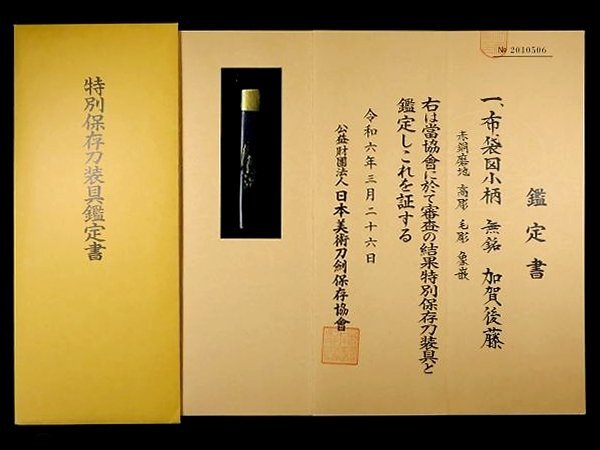 № 2010506
鑑定書
一、布袋図小柄 無銘 加賀後藤
赤銅磨地 高彫 毛彫 象嵌
右は當協會に於て審査の結果特別保存刀装具と
鑑定しこれを証する
令和六年三月二十六日
公益財團法人 日本美術刀剣保存協會
特別保存刀装具鑑定書